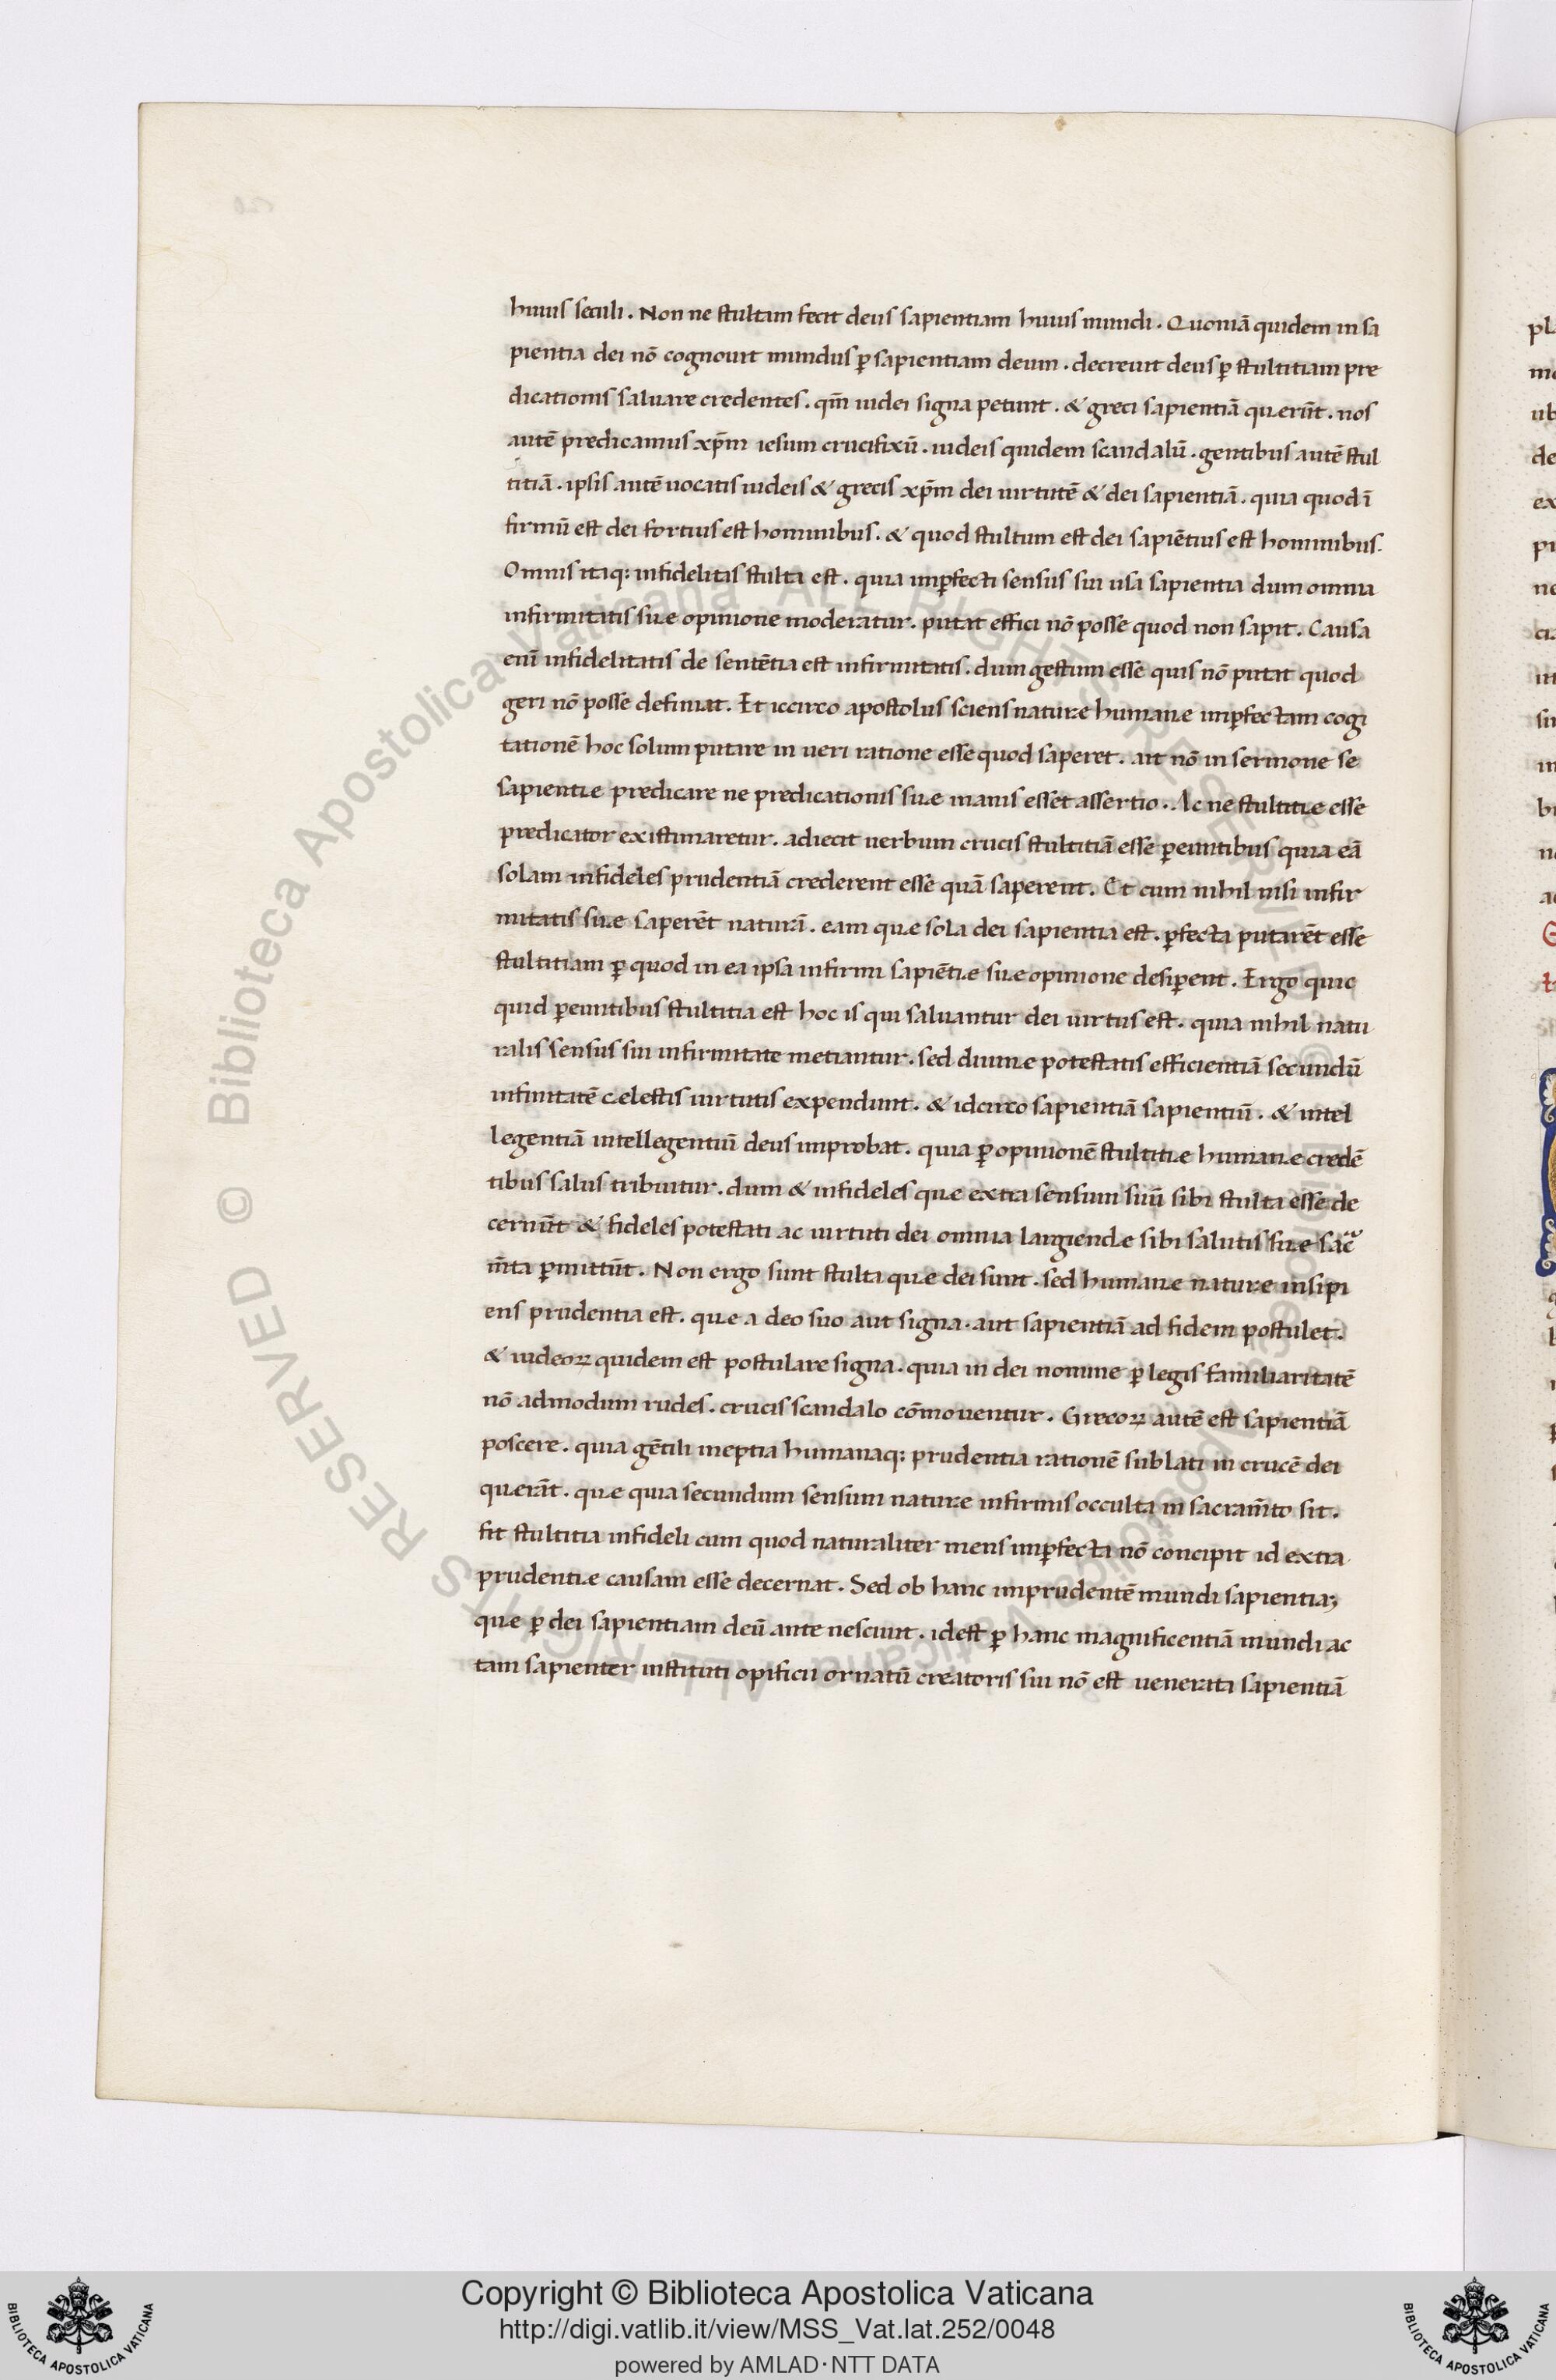 huius seculi. Non ne stultam fecit deus sapientiam huius mundi. Quoniā quidem in sa
pientia dei nō cognouit mundus ꝑ sapientiam deum. decreuit deus ꝑ stultitiam pre
dicationis saluare credentes. qm̄ iudei signa petunt. & greci sapientiā querūt. nos
autē predicamus xp̄m iesum crucifixū. iudeis quidem scandalū. gentibus autē stul
titiā. ipsis autē uocatis iudeis & grecis xp̄m dei uirtutē & dei sapientiā. quia quod ī
firmū est dei fortius est hominibus. & quod stultum est dei sapiētius est hominibus.
Omnis itaq: infidelitas stulta est. quia imꝑfecti sensus sui usa sapientia dum omnia
infirmitatis suæ opinione moderatur. putat effici nō posse quod non sapit. Causa
enī infidelitatis de sentētia est infirmitatis. dum gestum esse quis nō putat quod
geri nō posse definiat. Et iccirco apostolus sciens naturæ humanæ imꝑfectam cogi
tationē hoc solum putare in ueri ratione esse quod saperet. ait nō in sermone se
sapientiæ predicare ne predicationis suæ inanis esset assertio. Ac ne stultitiæ esse
predicator existimaretur. adiecit uerbum crucis stultitiā esse ꝑeuntibus quia eā
solam infideles prudentiā crederent esse quā saperent. Et cum nihil nisi infir
mitatis suæ saperēt naturā. eam quæ sola dei sapientia est. ꝑfecta putarēt esse
stultitiam ꝑ quod in ea ipsa infirmi sapiētiæ suæ opinione desiꝑent. Ergo quic
quid ꝑeuntibus stultitia est hoc is qui saluantur dei uirtus est. quia nihil natu
ralis sensus sui infirmitate metiantur. sed diuinæ potestatis efficientiā secundū
infinitatē cælestis uirtutis expendunt. & idcirco sapientiā sapientiū. & intel
legentiā intellegentiū deus improbat. quia ꝑ opinionē stultitiæ humanæ credē
tibus salus tribuitur. dum & infideles quæ extra sensum suū sibi stulta esse de
cernūt & fideles potestati ac uirtuti dei omnia largiendæ sibi salutis suæ sac̄
m̄ta ꝑmittūt. Non ergo sunt stulta quæ dei sunt. sed humanæ naturæ insipi
ens prudentia est. quæ a deo suo aut signa. aut sapientiā ad fidem postulet.
& iudeoꝝ quidem est postulare signa. quia in dei nomine ꝑ legis familiaritatē
nō admodum rudes. crucis scandalo cōmouentur. Grecoꝝ autē est sapientiā
poscere. quia gētili ineptia humanaq: prudentia rationē sublati in crucē dei
querāt. quæ quia secundum sensum naturæ infirmis occulta in sacram̄to sit.
fit stultitia infideli cum quod naturaliter mens imꝑfecta nō concipit id extra
prudentiæ causam esse decernat. Sed ob hanc imprudentē mundi sapientiaꝫ
quæ ꝑ dei sapientiam deū ante nesciunt. idest ꝑ hanc magnificentiā mundi ac
tam sapienter instituti opificii ornatū creatoris sui nō est uenerata sapientiā
Copyright © Biblioteca Apostolica Vaticana
http://digi.vatlib.it/view/MSS_Vat.lat.252/0048
powered by AMLAD·NTT DATA